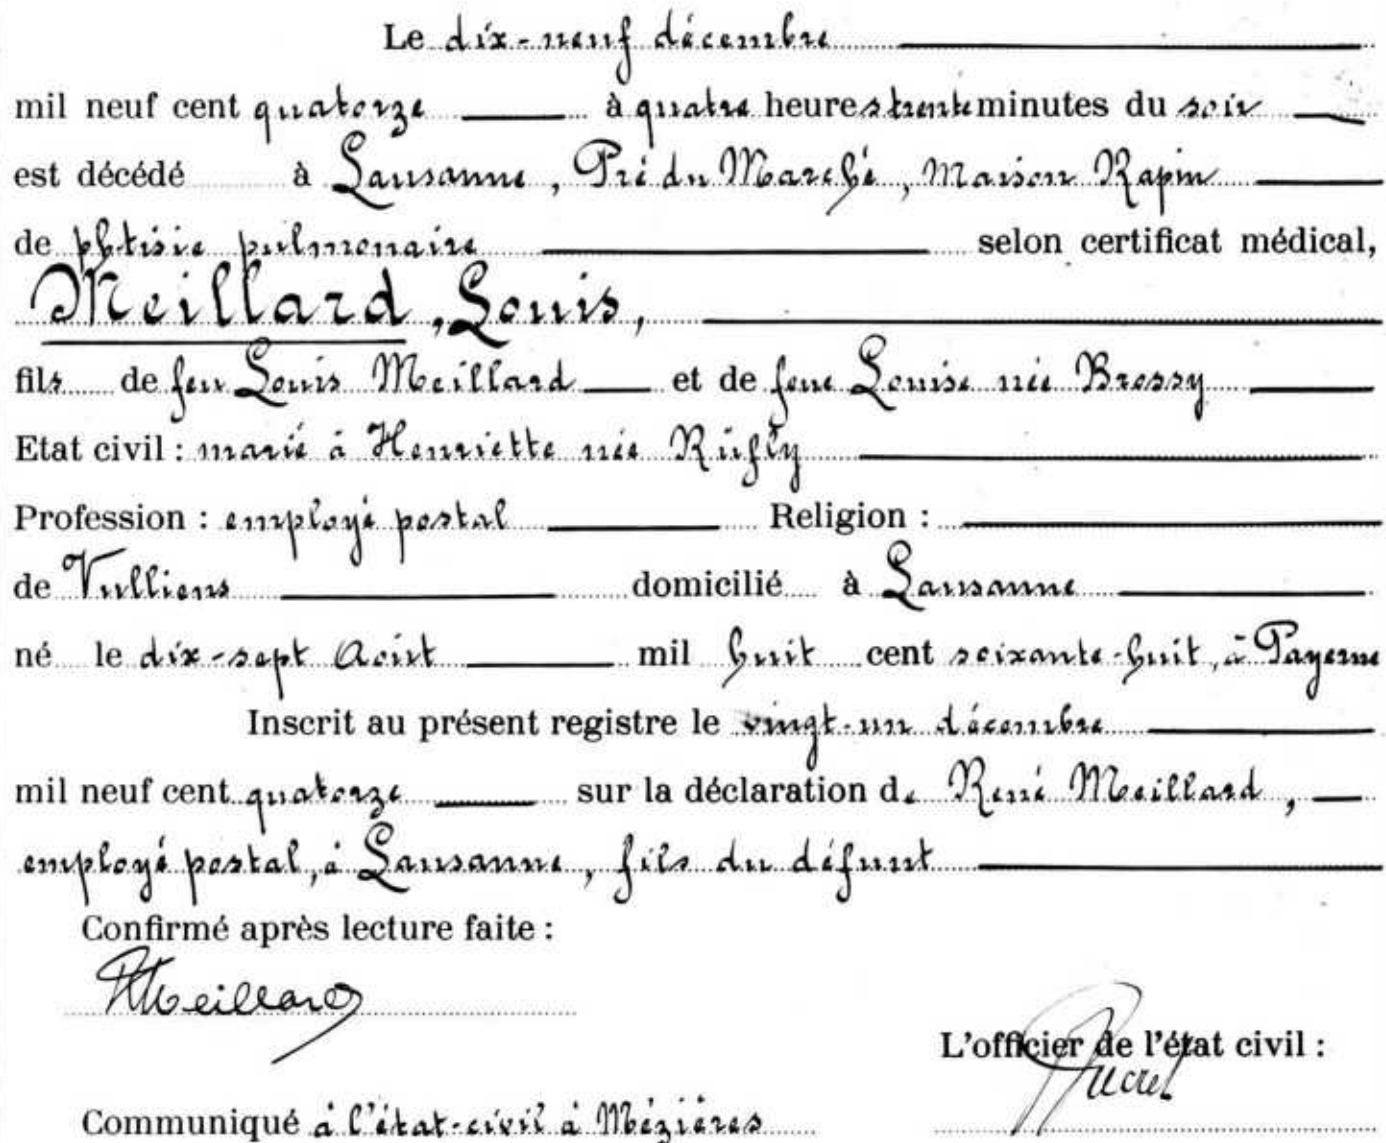 Le dix-neuf décembre
mil neuf cent quatorze à quatre heures trente minutes du soir
est décédé à Lausanne, Pré du Marché, Maison Rapin
de phtisie pulmonaire selon certificat médical,
Meillard, Louis,
fils de feu Louis Meillard et de feue Louise née Brossy
Etat civil : marié à Henriette née Rüfly
Profession : employé postal Religion :
de Vulliens domicilié à Lausanne
né le dix-sept Août mil huit cent soixante-huit, à Payerne
Inscrit au présent registre le vingt-un décembre
mil neuf cent quatorze sur la déclaration de René Meillard,
employé postal, à Lausanne, fils du défunt
Confirmé après lecture faite :
RMeillard
L'officier de l'état civil :
Communiqué à l'état-civil à Mézières